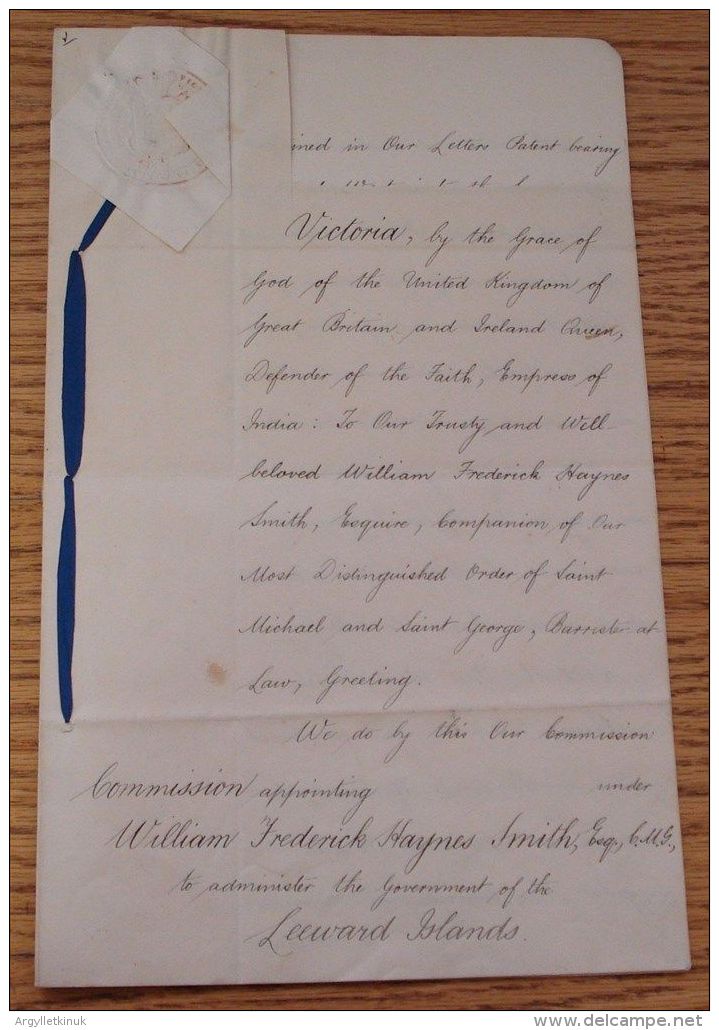 in Our Letters Patent bearing
Victoria, by the Grace of
God of the United Kingdom of
Great Britain and Ireland Queen,
Defender of the Faith, Empress of
India: To Our Trusty and Well
beloved William Frederick Haynes
Smith, Esquire, Companion of Our
Most Distinguished Order of Saint
Michael and Saint George, Barrister at
Law, Greeting.
We do by this Our Commission
under
Commission appointing
William Frederick Haynes Smith, Esq., C.M.G.,
to administer the Government of the
Leeward Islands.
Argylletkinuk
www.delcampe.net